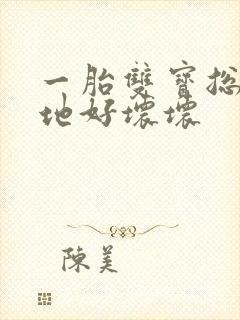 一胎雙寶總
地好壞壞
陳美